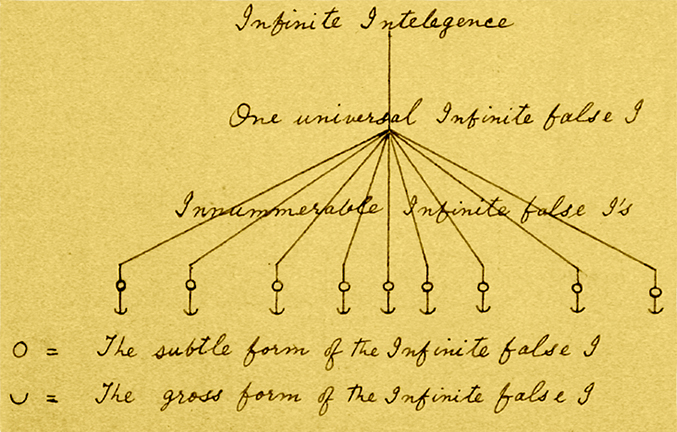 Infinite Intelegence
One universal Infinite false I
Innummerable Infinite false I's
O = The subtle form of the Infinite false I
◡ = The gross form of the Infinite false I